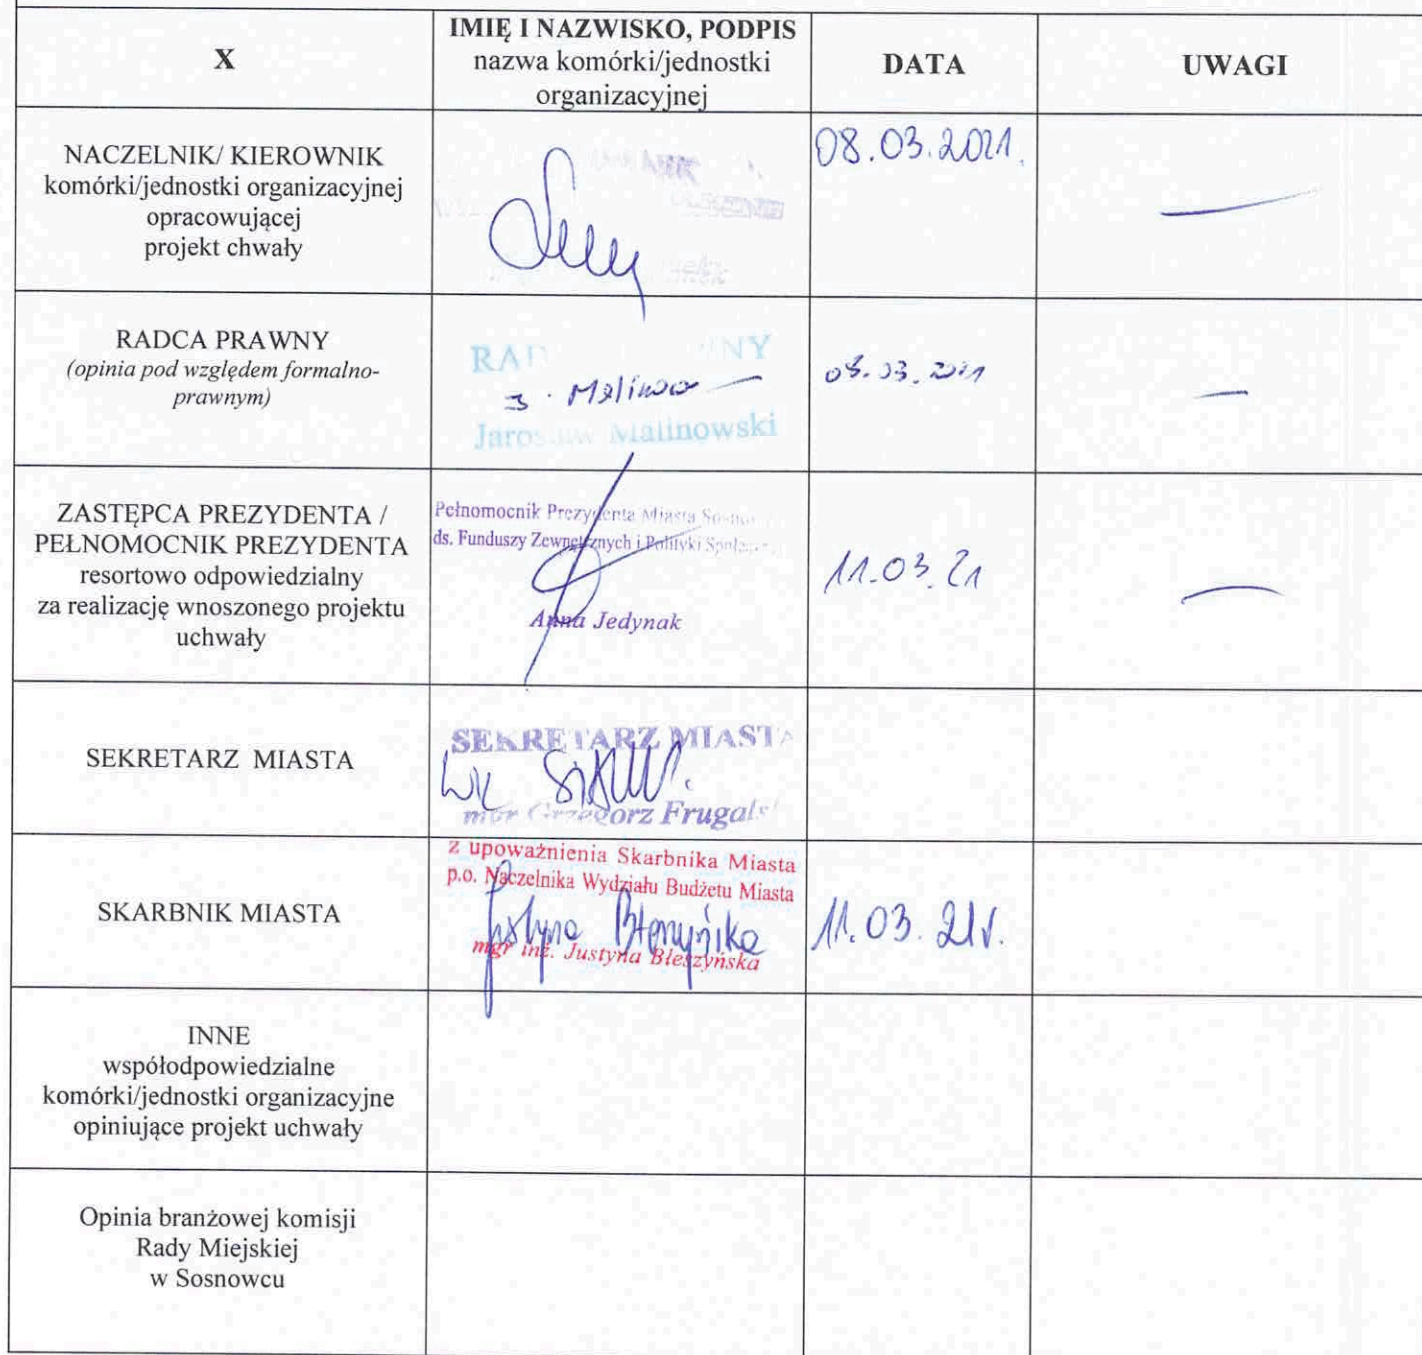 X
IMIĘ I NAZWISKO, PODPIS
nazwa komórki/jednostki
organizacyjnej
DATA
UWAGI
NACZELNIK/ KIEROWNIK
komórki/jednostki organizacyjnej
opracowującej
projekt chwały
08.03.2021.
RADCA PRAWNY
(opinia pod względem formalno-
prawnym)
Jarosław Malinowski
ZASTĘPCA PREZYDENTA /
PEŁNOMOCNIK PREZYDENTA
resortowo odpowiedzialny
za realizację wnoszonego projektu
uchwały
Pełnomocnik Prezydenta Miasta
ds. Funduszy Zewnętrznych i Polityki
Anna Jedynak
11.03.21
SEKRETARZ MIASTA
SEKRETARZ MIASTA
mgr Grzegorz
SKARBNIK MIASTA
z upoważnienia Skarbnika Miasta
p.o. Naczelnika Wydziału Budżetu Miasta
Justyna
mgr inż. Justyna Błeszyńska
11.03.21r.
INNE
współodpowiedzialne
komórki/jednostki organizacyjne
opiniujące projekt uchwały
Opinia branżowej komisji
Rady Miejskiej
w Sosnowcu